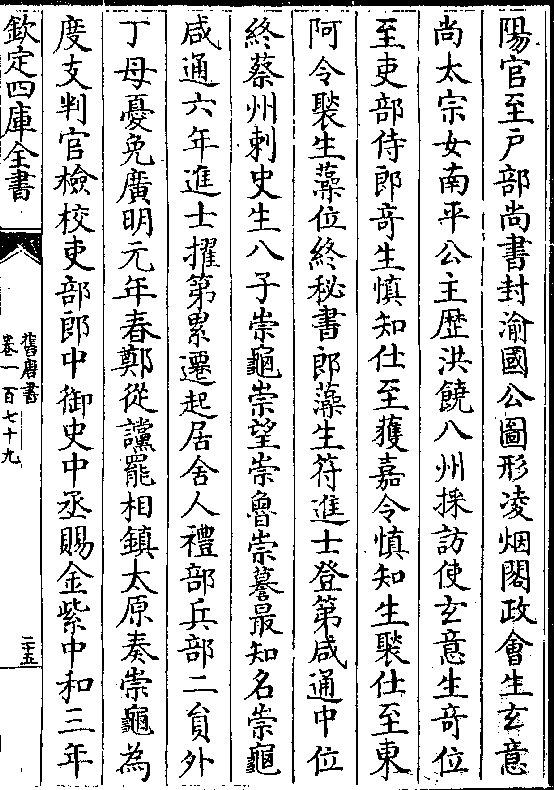 陽官至戸部尚書封渝國公圖形凌烟閣政會生玄意
尚太宗女南平公主歴洪饒八州採訪使玄意生竒位
至吏部侍郎竒生慎知仕至獲嘉令慎知生褧仕至東
阿令褧生藻位終秘書郎藻生符進士登第咸通中位
終蔡州刺史生八子崇龜崇望崇魯崇蕚最知名崇龜
咸通六年進士擢第累遷起居舍人禮部兵部二員外
丁母憂免廣明元年春鄭從讜罷相鎮太原奏崇龜為
度支判官檢校吏部郎中御史中丞賜金紫中和三年
欽定四庫全書
舊唐書
卷一百七十九
二十五